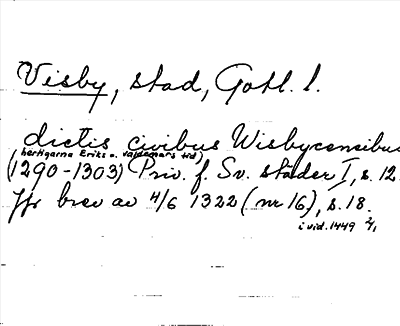 Visby, stad, Gotl. l.
dictis civibus Wisbycensibus
(hertigarna Eriks o. Valdemars tid)
(1290-1303) Priv. f. Sv. städer I, s. 12.
Jfr brev av 4/6 1322 (nr 16), s. 18.
i vid. 1449 2/1